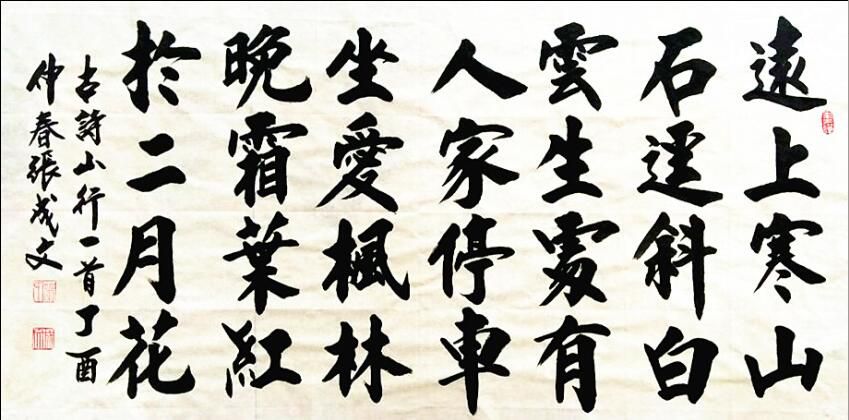 遠上寒山
石迳斜白
雲生處有
人家停車
坐愛楓林
晚霜葉紅
於二月花
古詩山行一首丁酉
仲春張成文